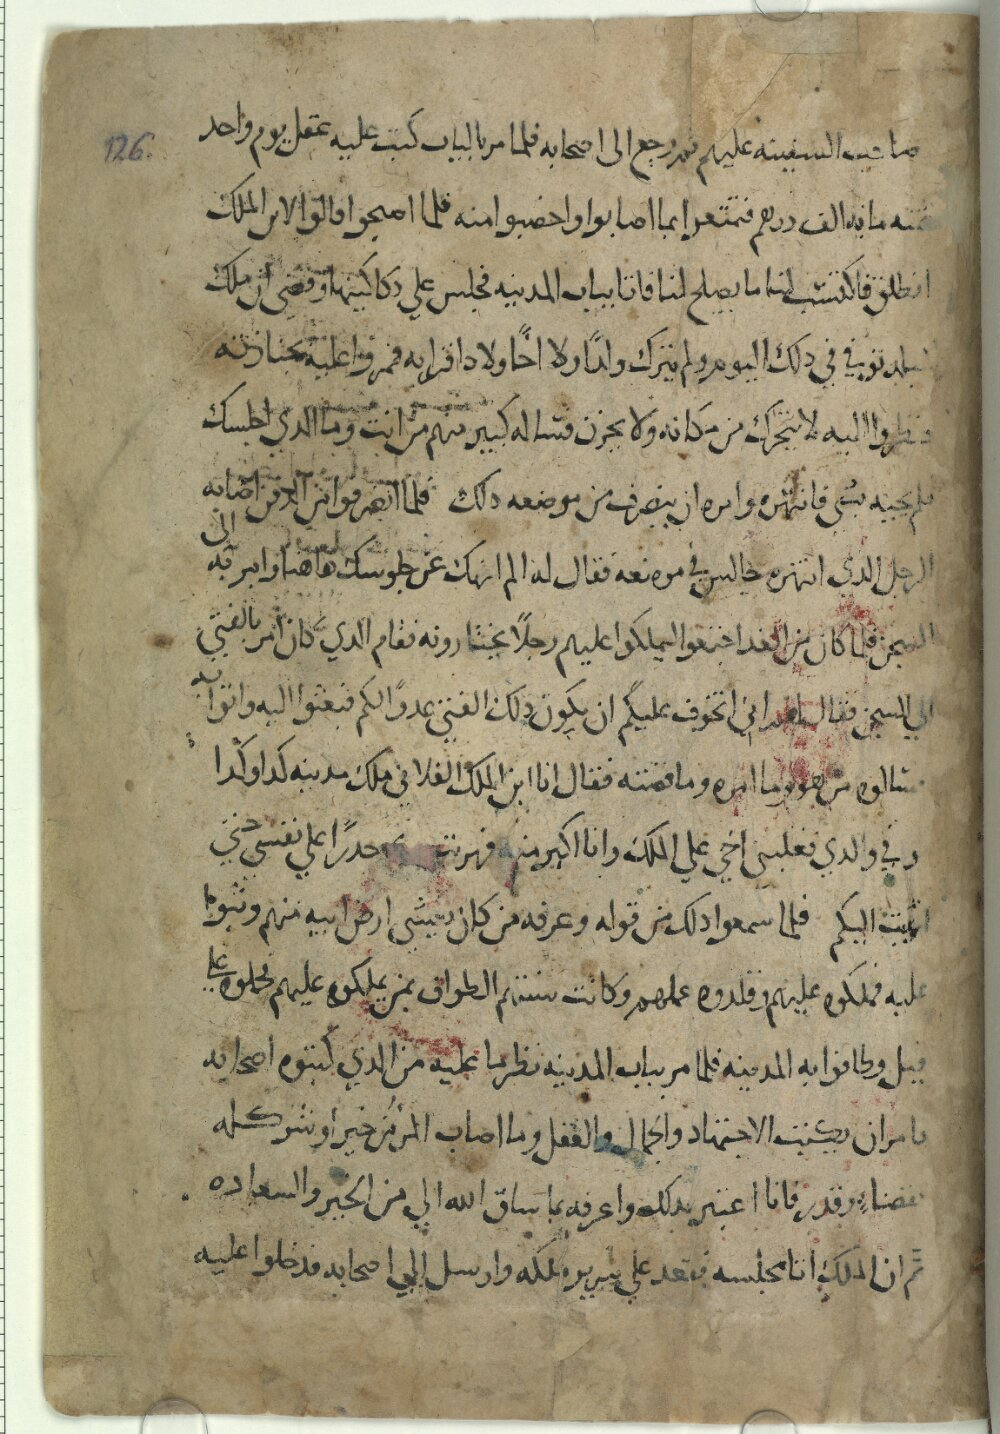 صاحب السفينه عليهم ثم رجع الى اصحابه فلما مر بالباب كتب عليه عقل يوم واحد
126.
ثمنه مايه الف درهم فتمتعوا بما اصابوا واخصبوا منه فلما اصبحوا قالوا لابن الملك
انطلق فاكتسب لنا ما يصلح لنا فاتا باب المدينه فجلس علي دكا كينها وقضي ان ملك
البلد توفي في ذلك اليوم ولم يترك ولدًا ولا اخًا ولا ذا قرابه فمروا عليه بجنازته
فنظروا اليه لا يتحرك من مكانه ولا يحزن فساله كبير منهم من انت وما الذي اجلسك
فلم يجبه بشي فانتهره وامره ان ينصرف من موضعه ذلك فلما انصرفوا من الدفن اصابه
الرجل الذي انتهره جالس في موضعه فقال له الم انهك عن جلوسك هاهنا وامر به الى
السجن فلما كان من الغد اجتمعوا ليملكوا عليهم رجلًا يختارونه فقام الذي كان امر بالفتي
الي السجن فقال اني اتخوف عليكم ان يكون ذلك الفتي عدوًا لكم فبعثوا اليه واتوا به
فسالوه من هو وما امره وما قصته فقال انا ابن الملك الفلاني ملك مدينه كدا وكدا
توفي والدي فغلبني اخي علي الملك وانا اكبر منه فهربت حدرًا علي نفسي حتي
اتيت اليكم فلما سمعوا ذلك من قوله وعرفه من كان يغشي ارض ابيه منهم وثبوا
عليه فملكوه عليهم وقلدوه عملهم وكانت سنتهم الطواف بمن يملكوه عليهم فحملوه علي
فيل وطافوا به المدينه فلما مر بباب المدينه نظر ما عليه من الذي كتبوه اصحابه
فامر ان يكتب الاجتهاد والجمال والعقل وما اصاب المر من خير او شر كله
بقضاء وقدر فانا اعتبر بذلك واعرفه بما ساق الله الي من الخير والسعاده
ثم ان الملك اتا مجلسه فقعد علي سرير ملكه وارسل الي اصحابه فدخلوا عليه